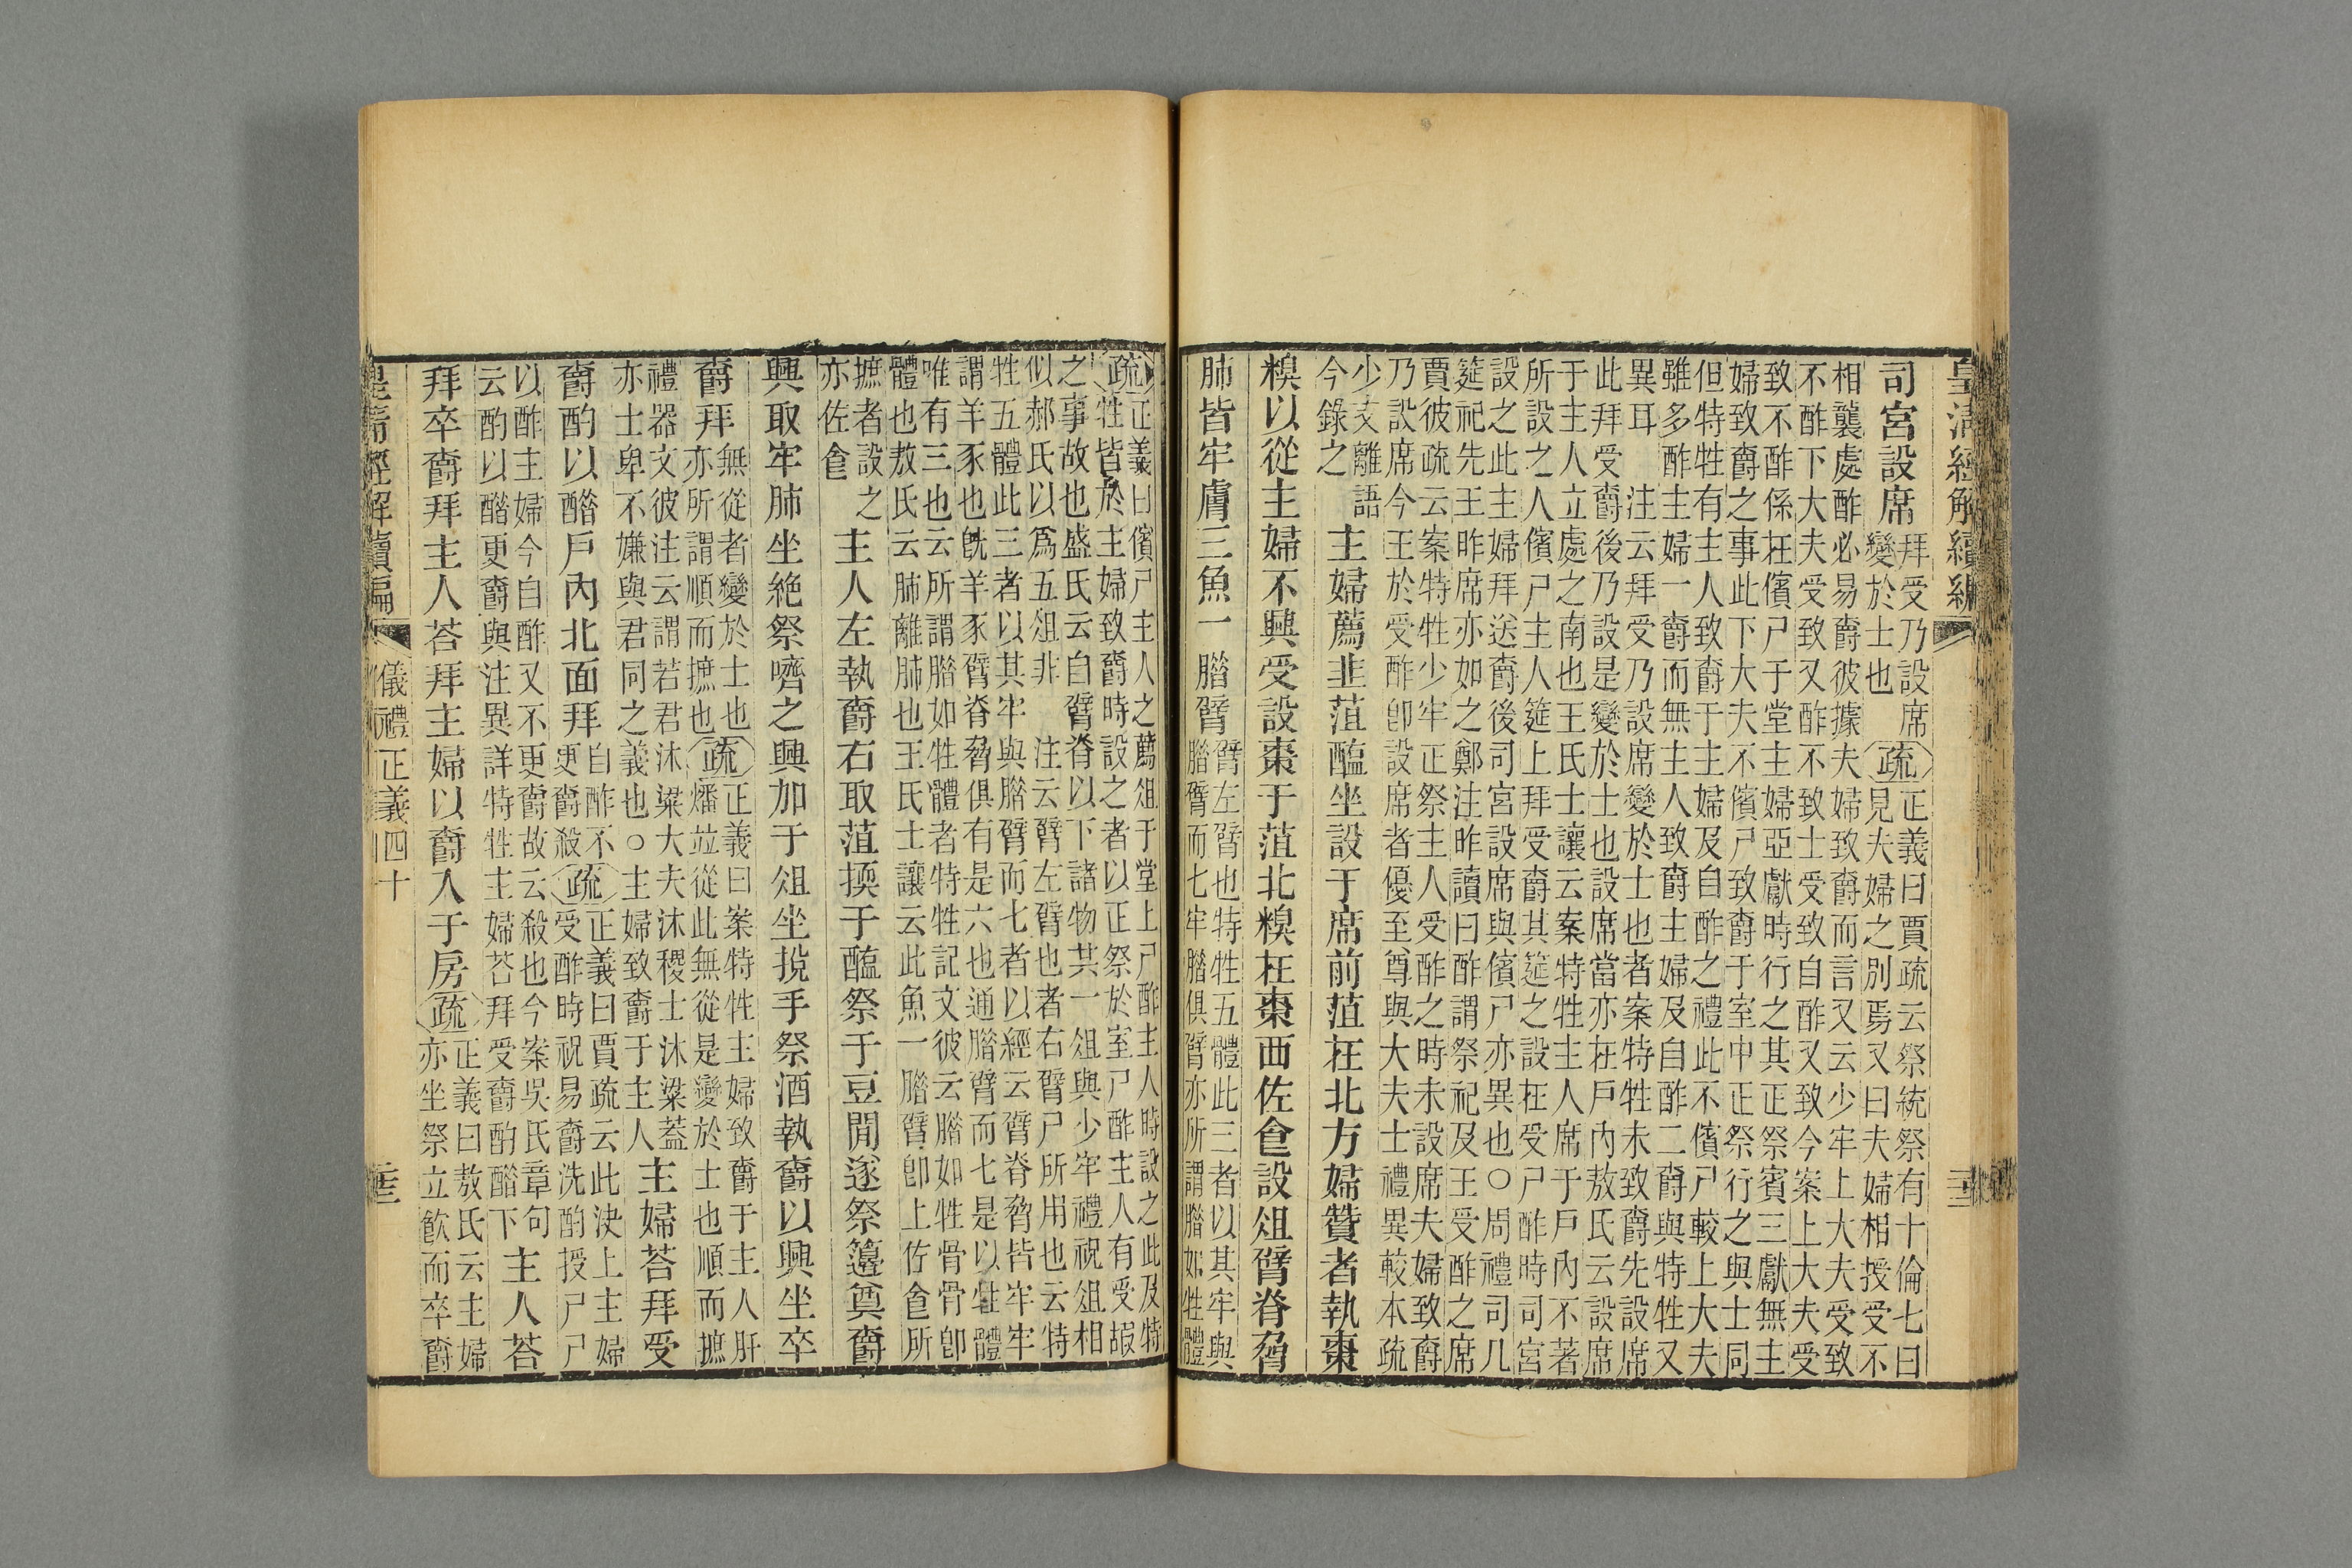 皇清經解續編
司宮設席
拜受乃設席
變於士也
疏
正義曰賈疏云祭統祭有十倫七曰
見夫婦之別焉又曰夫婦相授受不
相襲處酢必易爵彼據夫婦致爵而言又云少牢上大夫受致
不酢下大夫受致又酢不致士受致自酢又致今案上大夫受
致不酢係在儐尸于堂主婦亞獻時行之其正祭賓三獻無主
婦致爵之事此下大夫不儐尸致爵于室中正祭行之與士同
但特牲有主人致爵于主婦及自酢之禮此不儐尸較上大夫
雖多酢主婦一爵而無主人致爵主婦及自酢二爵與特牲又
異耳　注云拜受乃設席變於士也者案特牲未致爵先設席
此拜受爵後乃設是變於士也設席當亦在戶內敖氏云設席
于主人立處之南也王氏士讓云案特牲主人席于戶內不著
所設之人儐尸主人筵上拜受爵其筵之設在受尸酢時司宮
設之此主婦拜送爵後司宮設席與儐尸亦異也○周禮司几
筵祀先王昨席亦如之鄭注昨讀曰酢謂祭祀及王受酢之席
賈彼疏云案特牲少牢正祭主人受酢之時未設席夫婦致爵
乃設席今王於受酢卽設席者優至尊與大夫士禮異較本疏
少支離語
今錄之
主婦薦韭菹醢坐設于席前菹在北方婦贊者執棗
糗以從主婦不興受設棗于菹北糗在棗西佐食設俎臂脊脅
肺皆牢膚三魚一腊臂
臂左臂也特牲五體此三者以其牢與
腊臂而七牢腊俱臂亦所謂腊如牲體
疏
正義曰儐尸主人之薦俎于堂上尸酢主人時設之此及特
牲皆於主婦致爵時設之者以正祭於室尸酢主人有受嘏
之事故也盛氏云自臂脊以下諸物其一俎與少牢禮祝俎相
似郝氏以爲五俎非　注云臂左臂也者右臂尸所用也云特
牲五體此三者以其牢與腊臂而七者以經云臂脊脅皆牢牢
謂羊豕也旣羊豕臂脊脅俱有是六也通腊臂而七是以牲體
唯有三也云所謂腊如牲體者特牲記文彼云腊如牲骨骨卽
體也敖氏云肺離肺也王氏士讓云此魚一腊臂卽上佐食所
摭者設之
亦佐食
主人左執爵右取菹㨎于醢祭于豆閒遂祭籩奠爵
興取牢肺坐絕祭嚌之興加于俎坐挩手祭酒執爵以興坐卒
爵拜
無從者變於士也
亦所謂順而摭也
疏
正義曰案特牲主婦致爵于主人肝
燔竝從此無從是變於士也順而摭
禮器文彼注云謂若君沐粱大夫沐稷士沐粱蓋
亦士卑不嫌與君同之義也○主婦致爵于主人
主婦荅拜受
爵酌以醋戶內北面拜
自酢不
更爵殺
疏
正義曰賈疏云此決上主婦
受酢時祝易爵洗酌授尸尸
以酢主婦今自酢又不更爵故云殺也今案吳氏章句
云酌以醋更爵與注異詳特牲主婦荅拜受爵酌醋下
主人荅
拜卒爵拜主人荅拜主婦以爵入于房
疏
正義曰敖氏云主婦
亦坐祭立飮而卒爵
皇清經解續編
儀禮正義四十